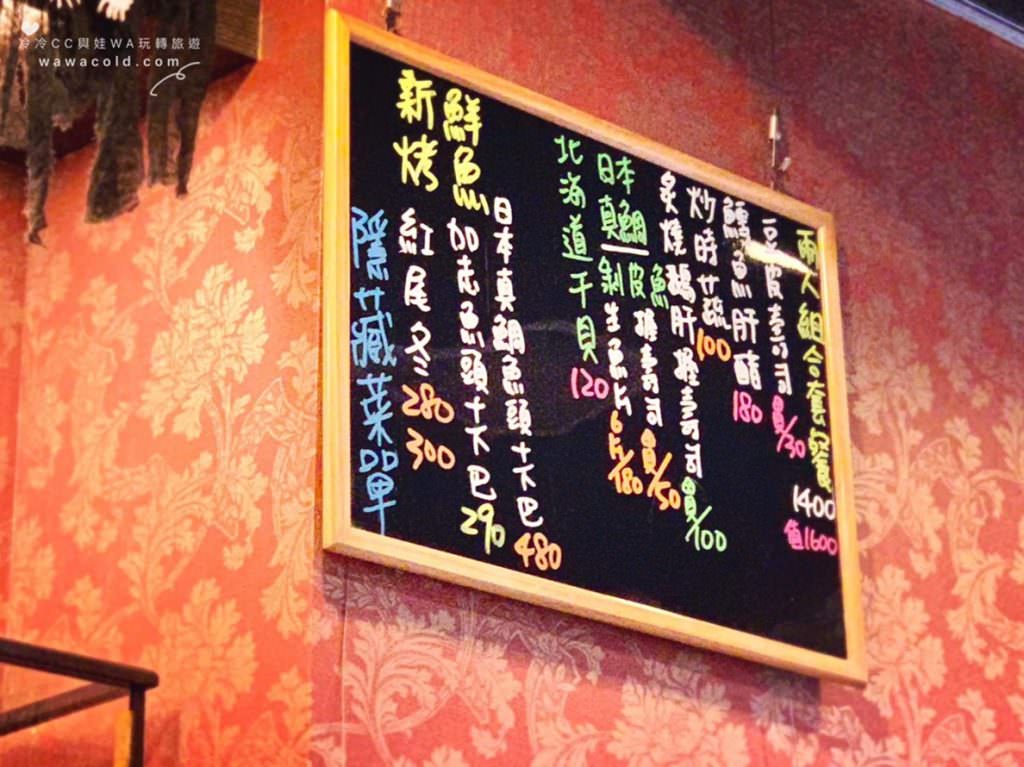 冷冷CC與娃WA玩轉旅遊
wawacold.com
兩人組合套餐 1400
魚1600
豆皮壽司 貝/30
鱈魚肝醋 180
炒時廿蔬 100
炙燒鵝肝握壽司 貝/100
日本真鯛
魚皮握壽司 貝/50
剝生魚片 6片/180
北海道干貝 120
日本真鯛魚頭十下巴 480
鮮魚
加志魚頭十下巴 290
新烤
紅尾冬 280
300
隱藏菜單